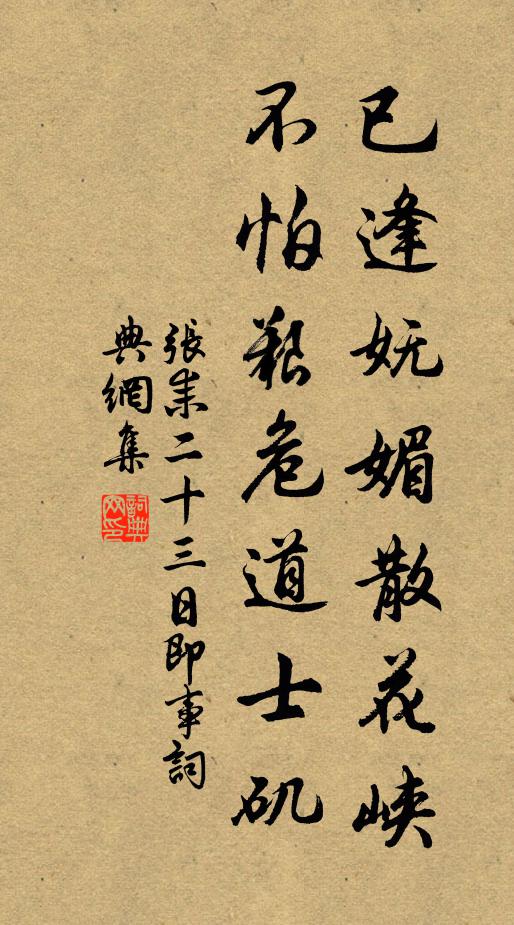 已逢妩媚散花峡
不怕艱危道士矶
張耒二十三日即事詞
典網集
詞典
网印